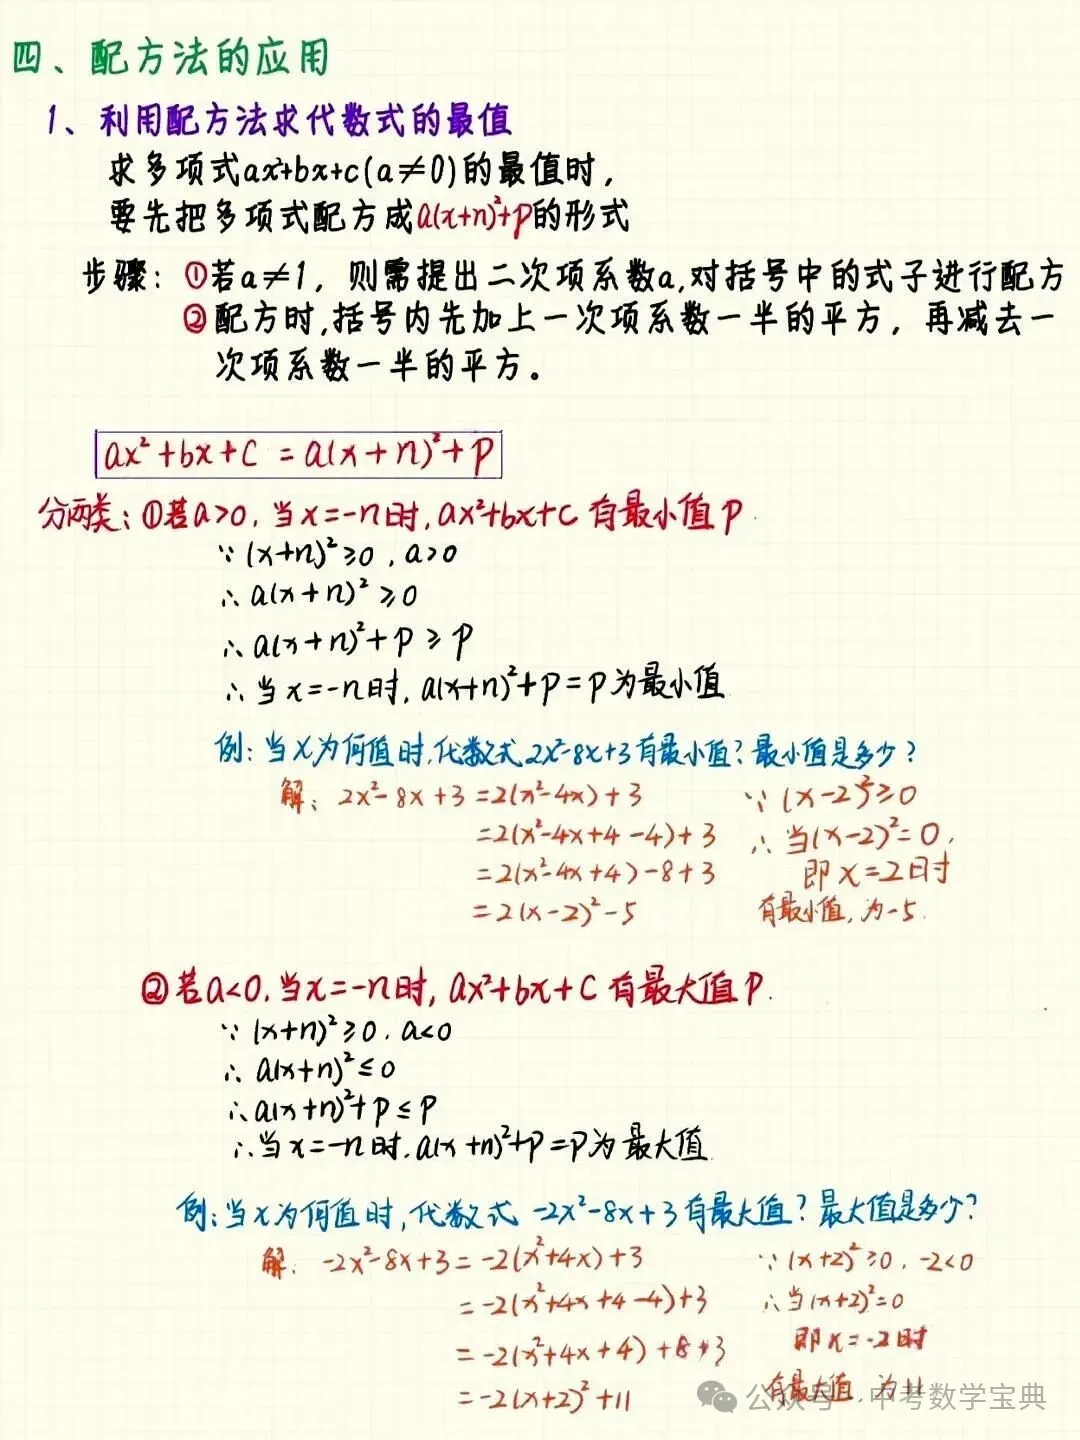 四、配方法的应用
1、利用配方法求代数式的最值
求多项式ax²+bx+c(a≠0)的最值时,
要先把多项式配方成a(x+n)²+p的形式
步骤: ①若a≠1, 则需提出二次项系数a,对括号中的式子进行配方
②配方时,括号内先加上一次项系数一半的平方, 再减去一
次项系数一半的平方。
ax²+bx+c=a(x+n)²+p
分两类: ①若a>0,当x=-n时,ax²+bx+c有最小值p.
∵(x+n)²≥0,a>0
∴a(x+n)²≥0
∴a(x+n)²+p≥p
∴当x=-n时,a(x+n)²+p=p为最小值
例:当x为何值时,代数式2x²-8x+3有最小值?最小值是多少?
解: 2x²-8x+3=2(x²-4x)+3
=2(x²-4x+4-4)+3
=2(x²-4x+4)-8+3
=2(x-2)²-5
∵(x-2)²≥0
∴当(x-2)²=0,
即x=2时
有最小值,为-5.
②若a<0,当x=-n时,ax²+bx+c有最大值p.
∵(x+n)²≥0,a<0
∴a(x+n)²≤0
∴a(x+n)²+p≤p
∴当x=-n时,a(x+n)²+p=p为最大值
例:当x为何值时,代数式-2x²-8x+3有最大值?最大值是多少?
解: -2x²-8x+3=-2(x²+4x)+3
=-2(x²+4x+4-4)+3
=-2(x²+4x+4)+8+3
=-2(x+2)²+11
∵(x+2)²≥0,-2<0
∴当(x+2)²=0
即x=-2时
有最大值,为11
公众号·中考数学宝典